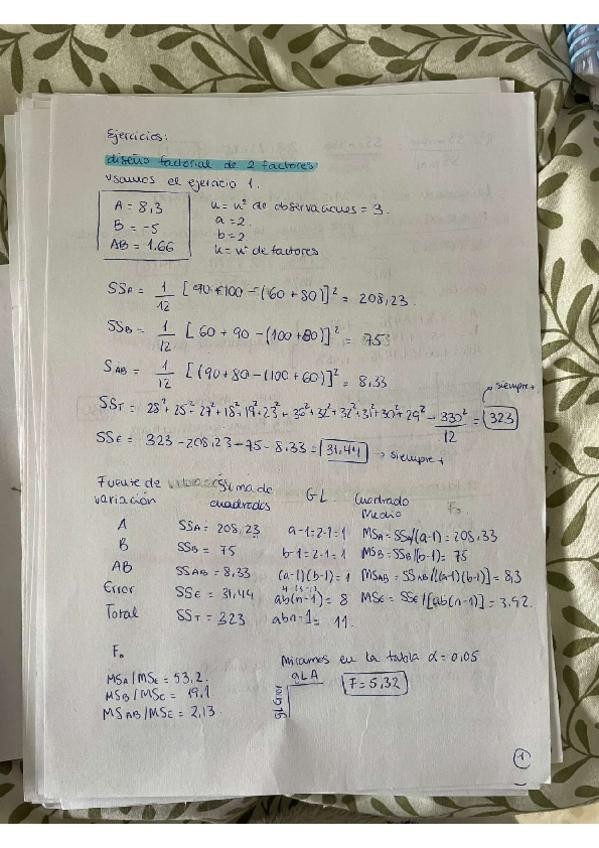 Ejercicios:
diseño factorial de 2 factores
usamos el ejercicio 1.
A = 8,3
B = -5
AB = 1.66
n = nº de observaciones = 3.
a = 2.
b = 2
k = nº de factores
SSA = 1/12 [90+100 - (60+80)]² = 208,23.
SSB = 1/12 [60+90-(100+80)]² = 75
SAB = 1/12 [(90+80-(100+60)]² = 8,33
siempre +
SST = 28²+25²+27²+18²+19²+23²+36²+32²+32²+31²+30²+29² - 330²/12 = 323
SSE = 323-208,23-75-8,33 = 31,44 → siempre +
Fuente de variación Suma de cuadrados GL Cuadrado Medio F₀
A SSA = 208,23 a-1=2-1=1 MSA = SSA/(a-1) = 208,33
B SSB = 75 b-1=2-1=1 MSB = SSB/(b-1) = 75
AB SSAB = 8,33 (a-1)(b-1)=1 MSAB = SSAB/[(a-1)(b-1)] = 8,3
Error SSE = 31,44 ab(n-1) = 8 MSE = SSE/[ab(n-1)] = 3,92.
Total SST = 323 abn-1= 11.
F₀
MSA/MSE = 53,2.
MSB/MSE = 19,1
MSAB/MSE = 2,13.
Miramos en la tabla α=0,05
gLA
F=5,32
1